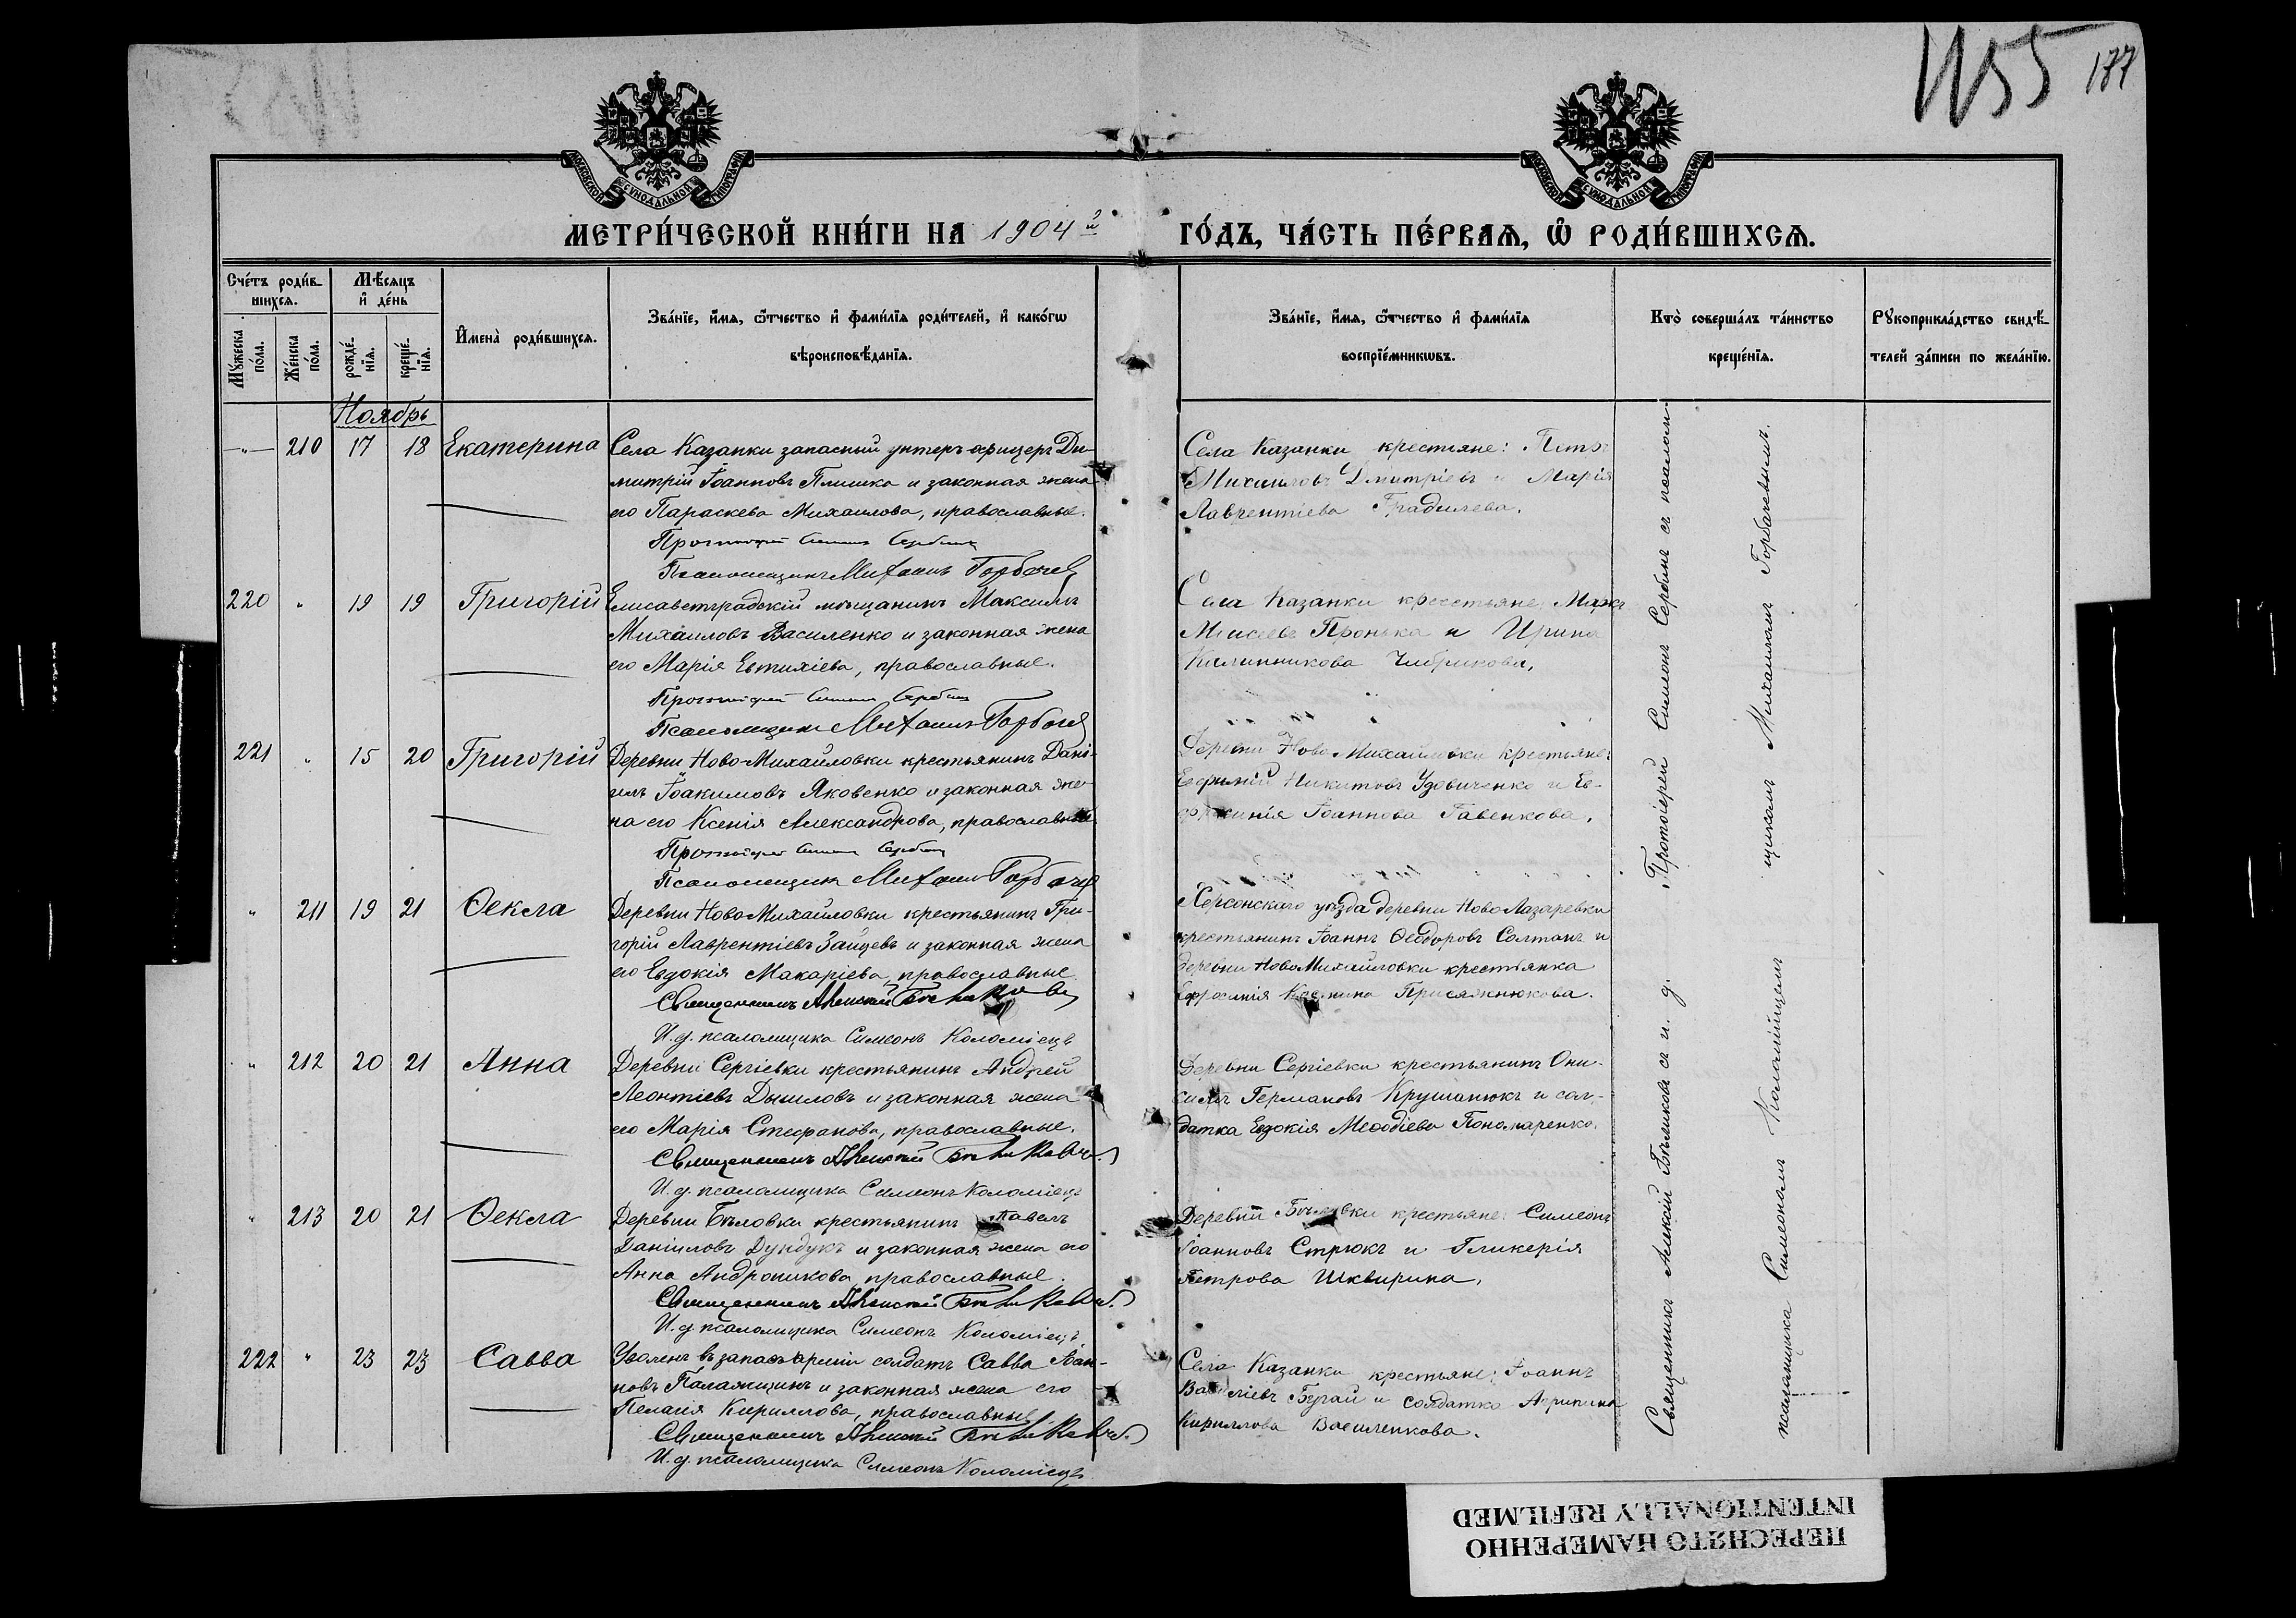 1155 177
МОСКОВСКОЙ СѴНОДАЛЬНОЙ ТИПОГРАФІИ
МОСКОВСКОЙ СѴНОДАЛЬНОЙ ТИПОГРАФІИ
МЕТРИ́ЧЕСКОЙ КНИ́ГИ НА 1904й ГО́ДЪ, ЧА́СТЬ ПЕ́РВАѦ, Ѡ РОДИ́ВШИХСѦ.
Сче́тъ роди́в-
шихся.
Мѣ́сяцъ
и де́нь
Мꙋ́жеска
по́ла.
Же́нска
по́ла.
рожде́-
нїя.
креще́-
нїя.
Имена̀ роди́вшихся.
Зва́нїе, и́мя, ѻ́тчество и фами́лїя роди́телей, и како́гѡ
вѣроисповѣ́данїя.
Зва́нїе, и́мя, ѻ́тчество и фами́лїя
воспрїе́мникѡвъ.
Кто̀ соверша́лъ та́инство
креще́нїя.
Рꙋкоприкла́дство свидѣ́-
телей за́писи по жела́нїю.
Ноябрь
-"- 210 17 18 Екатерина
Села Казанки запасный унтеръ-офицеръ Ди-
митрій Іоанновъ Плишка и законная жена
его Параскева Михаилова, православные.
Протоіерей Симеонъ Сербинъ
Псаломщикъ Михаилъ Горбачев
Села Казанки крестьяне: Петръ
Михаиловъ Дмитріевъ и Марія
Лаврентіева Градилева.
220 " 19 19 Григорій
Елисаветградскій мѣщанинъ Максимъ
Михаиловъ Василенко и законная жена
его Марія Евтихіева, православные.
Протоіерей Симеонъ Сербинъ
Псаломщикъ Михаилъ Горбачев
Села Казанки крестьяне, Марко
Моисеевъ Пронька и Ирина
Калинникова Чибрикова.
221 " 15 20 Григорій
Деревни Ново-Михайловки крестьянинъ Дані-
илъ Іоакимовъ Яковенко и законная же-
на его Ксенія Александрова, православные
Протоіерей Симеонъ Сербинъ
Псаломщикъ Михаилъ Горбачев
Деревни Ново-Михайловки крестьяне:
Евфимій Никитовъ Удовиченко и Ев-
фросинія Іоаннова Гавенкова.
" 211 19 21 Ѳекла
Деревни НовоМихайловки крестьянинъ Гри-
горій Лаврентіевъ Зайцевъ и законная жена
его Евдокія Макаріева, православные.
Священникъ Алексій Бѣликовъ
И. д. псаломщика Симеонъ Коломіецъ
Херсонскаго уѣзда деревни НовоЛазаревки
крестьянинъ Іоаннъ Ѳеодоровъ Солтанъ и
деревни НовоМихайловки крестьянка
Ефросинія Космина Присяжнюкова.
" 212 20 21 Анна
Деревни Сергіевки крестьянинъ Андрей
Леонтіевъ Дышловъ и законная жена
его Марія Стефанова, православные.
Священникъ Алексій Бѣликовъ.
И. д. псаломщика Симеонъ Коломіецъ
Деревни Сергіевки крестьянинъ Они-
симъ Германовъ Крушанюкъ и сол-
датка Евдокія Меѳодіева Пономаренко.
" 213 20 21 Ѳекла
Деревни Бѣловки крестьянинъ Павелъ
Даніиловъ Дундукъ и законная жена его
Анна Андроникова, православные.
Священникъ Алексій Бѣликовъ.
И. д. псаломщика Симеонъ Коломіецъ.
Деревни Бѣловки крестьяне: Симеонъ
Іоанновъ Стрюкъ и Гликерія
Петрова Шквирина.
222 " 23 23 Савва
Уволенъ въ запасъ арміи солдатъ Савва Іоан-
новъ Паламщинъ и законная жена его
Пелагія Кириллова, православные.
Священникъ Алексій Бѣликовъ.
И. д. псаломщика Симеонъ Коломіецъ
Села Казанки крестьяне: Іоаннъ
Василіевъ Бугай и солдатка Агрипина
Кириллова Василенкова.
Протоіерей Симеонъ Сербинъ съ псалом-
щикомъ Михаиломъ Горбачевымъ.
Священникъ Алексій Бѣликовъ съ и. д.
псаломщика Симеономъ Коломійцемъ
ПЕРЕСНЯТО НАМЕРЕННО
INTENTIONALLY REFILMED